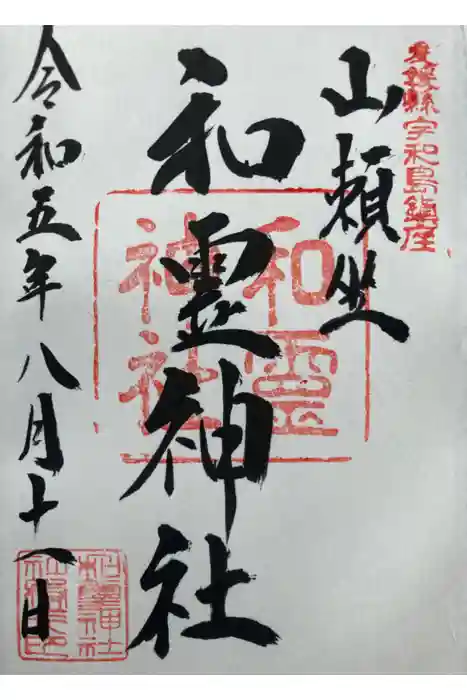 愛媛縣宇和島鎮座
山頼坐
和靈神社
和靈
神社
令和五年八月十八日
和霊神社